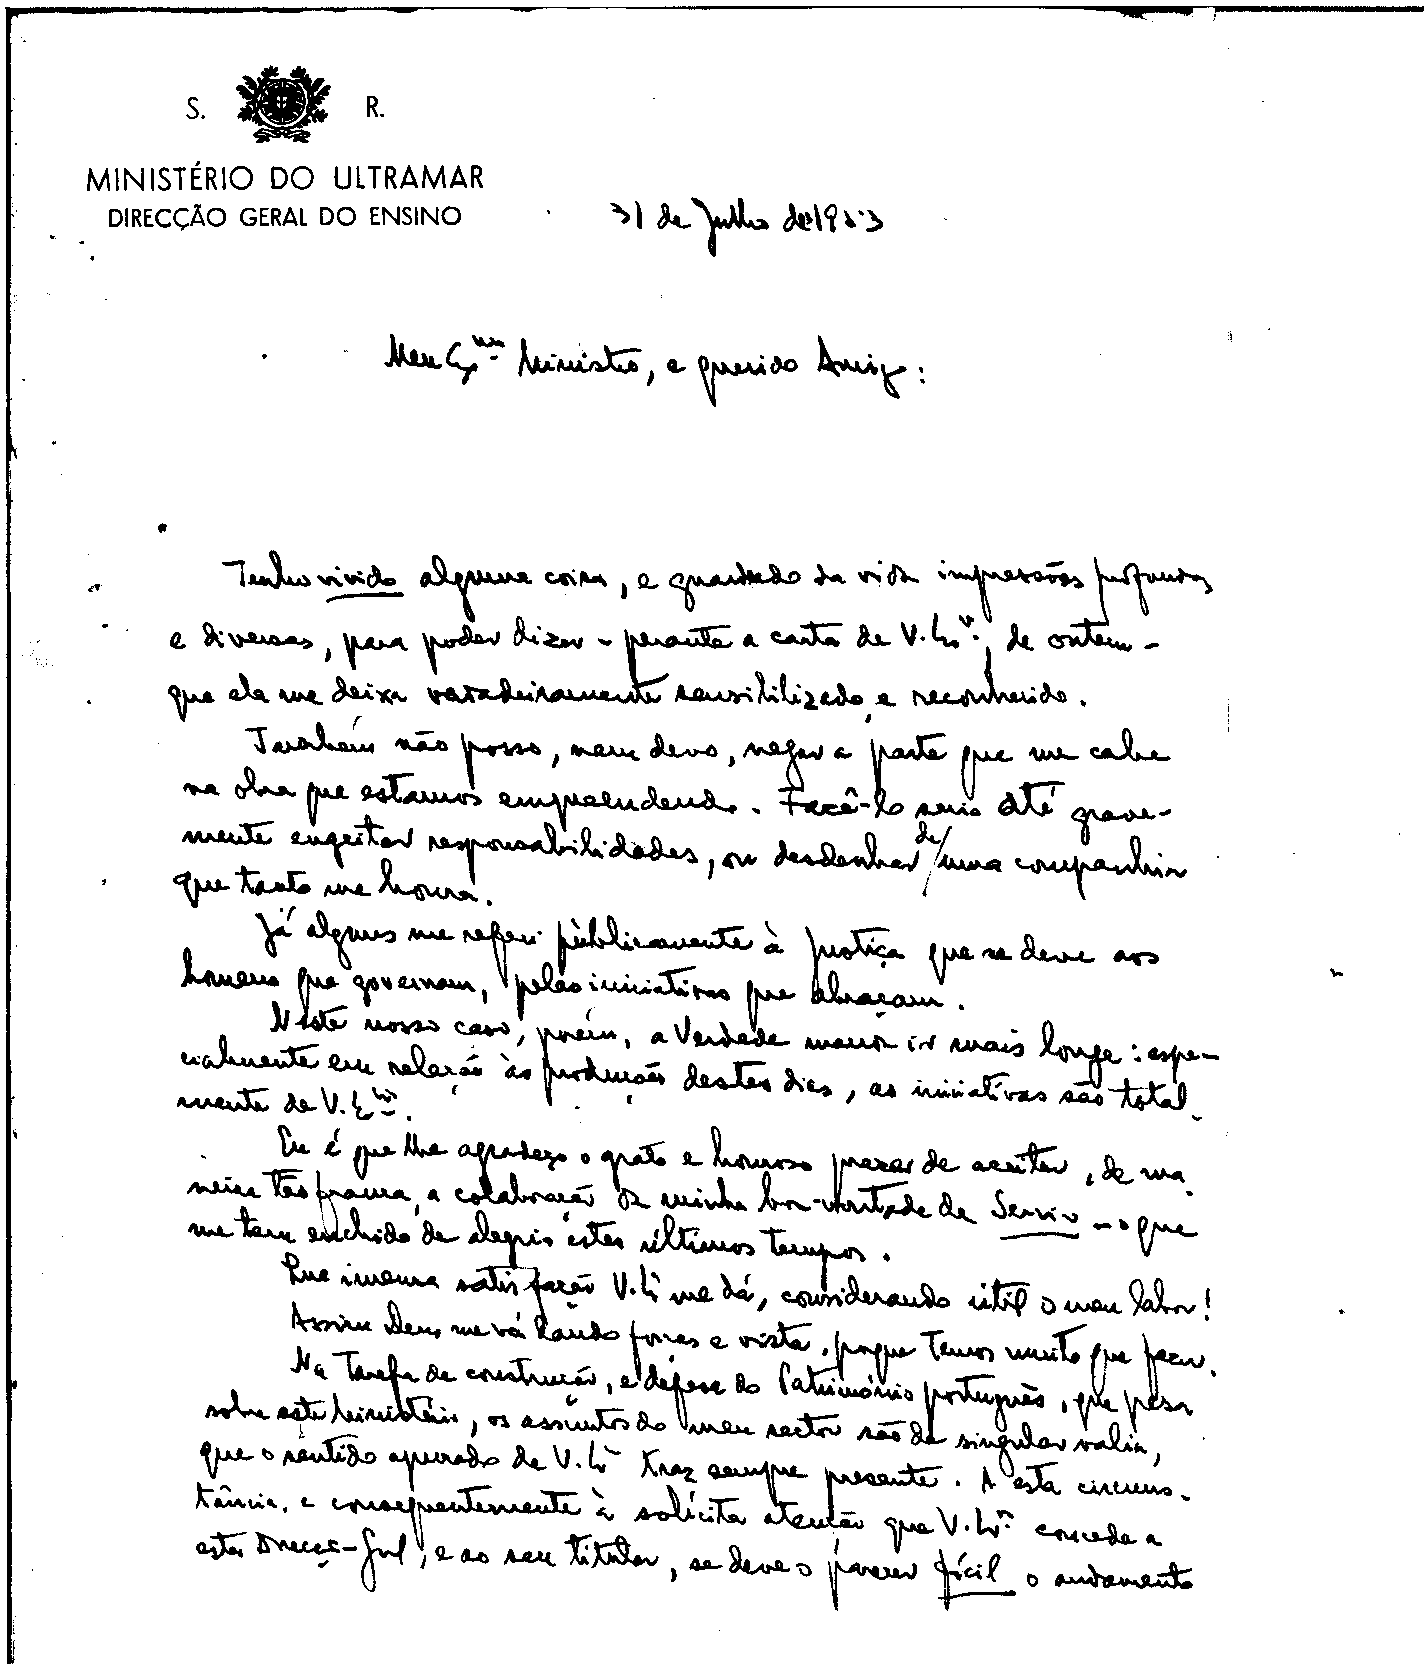 S. R.
MINISTÉRIO DO ULTRAMAR
DIRECÇÃO GERAL DO ENSINO
31 de Julho de 1953
Meu Exmo Ministro, e querido Amigo:
Tenho vivido alguma coisa, e guardado da vida impressões profundas
e diversas, para poder dizer - perante a carta de V. Exª., de ontem -
que ela me deixa verdadeiramente sensibilizado e reconhecido.
Também não posso, nem devo, negar a parte que me cabe
na obra que estamos empreendendo. Fazê-lo seria até grave-
mente engeitar responsabilidades, ou desdenhar de uma companhia
que tanto me honra.
Já algures me referi pùblicamente à justiça que se deve aos
homens que governam, pelas iniciativas que abraçam.
Neste nosso caso, porém, a Verdade manda ir mais longe: espe-
cialmente em relação às produções destes dias, as iniciativas são total-
mente de V. Exª.
Eu é que lhe agradeço o grato e honroso prazer de aceitar, de ma-
neira tão franca, a colaboração da minha boa-vontade de Servir - o que
me tem enchido de alegria êstes últimos tempos.
Que imensa satisfação V. Exª me dá, considerando útil o meu labor!
Assim Deus me vá dando forças e vista, porque temos muito que fazer.
Na tarefa de construção, e defesa do Património português, que pesa
sobre este Ministério, os assuntos do meu sector são de singular valia,
que o sentido apurado de V. Exª traz sempre presente. A esta circuns-
tância, e consequentemente à solícita atenção que V. Exª. concede a
esta Direcç.-Geral, e ao seu titular, se deve o parecer fácil o andamento